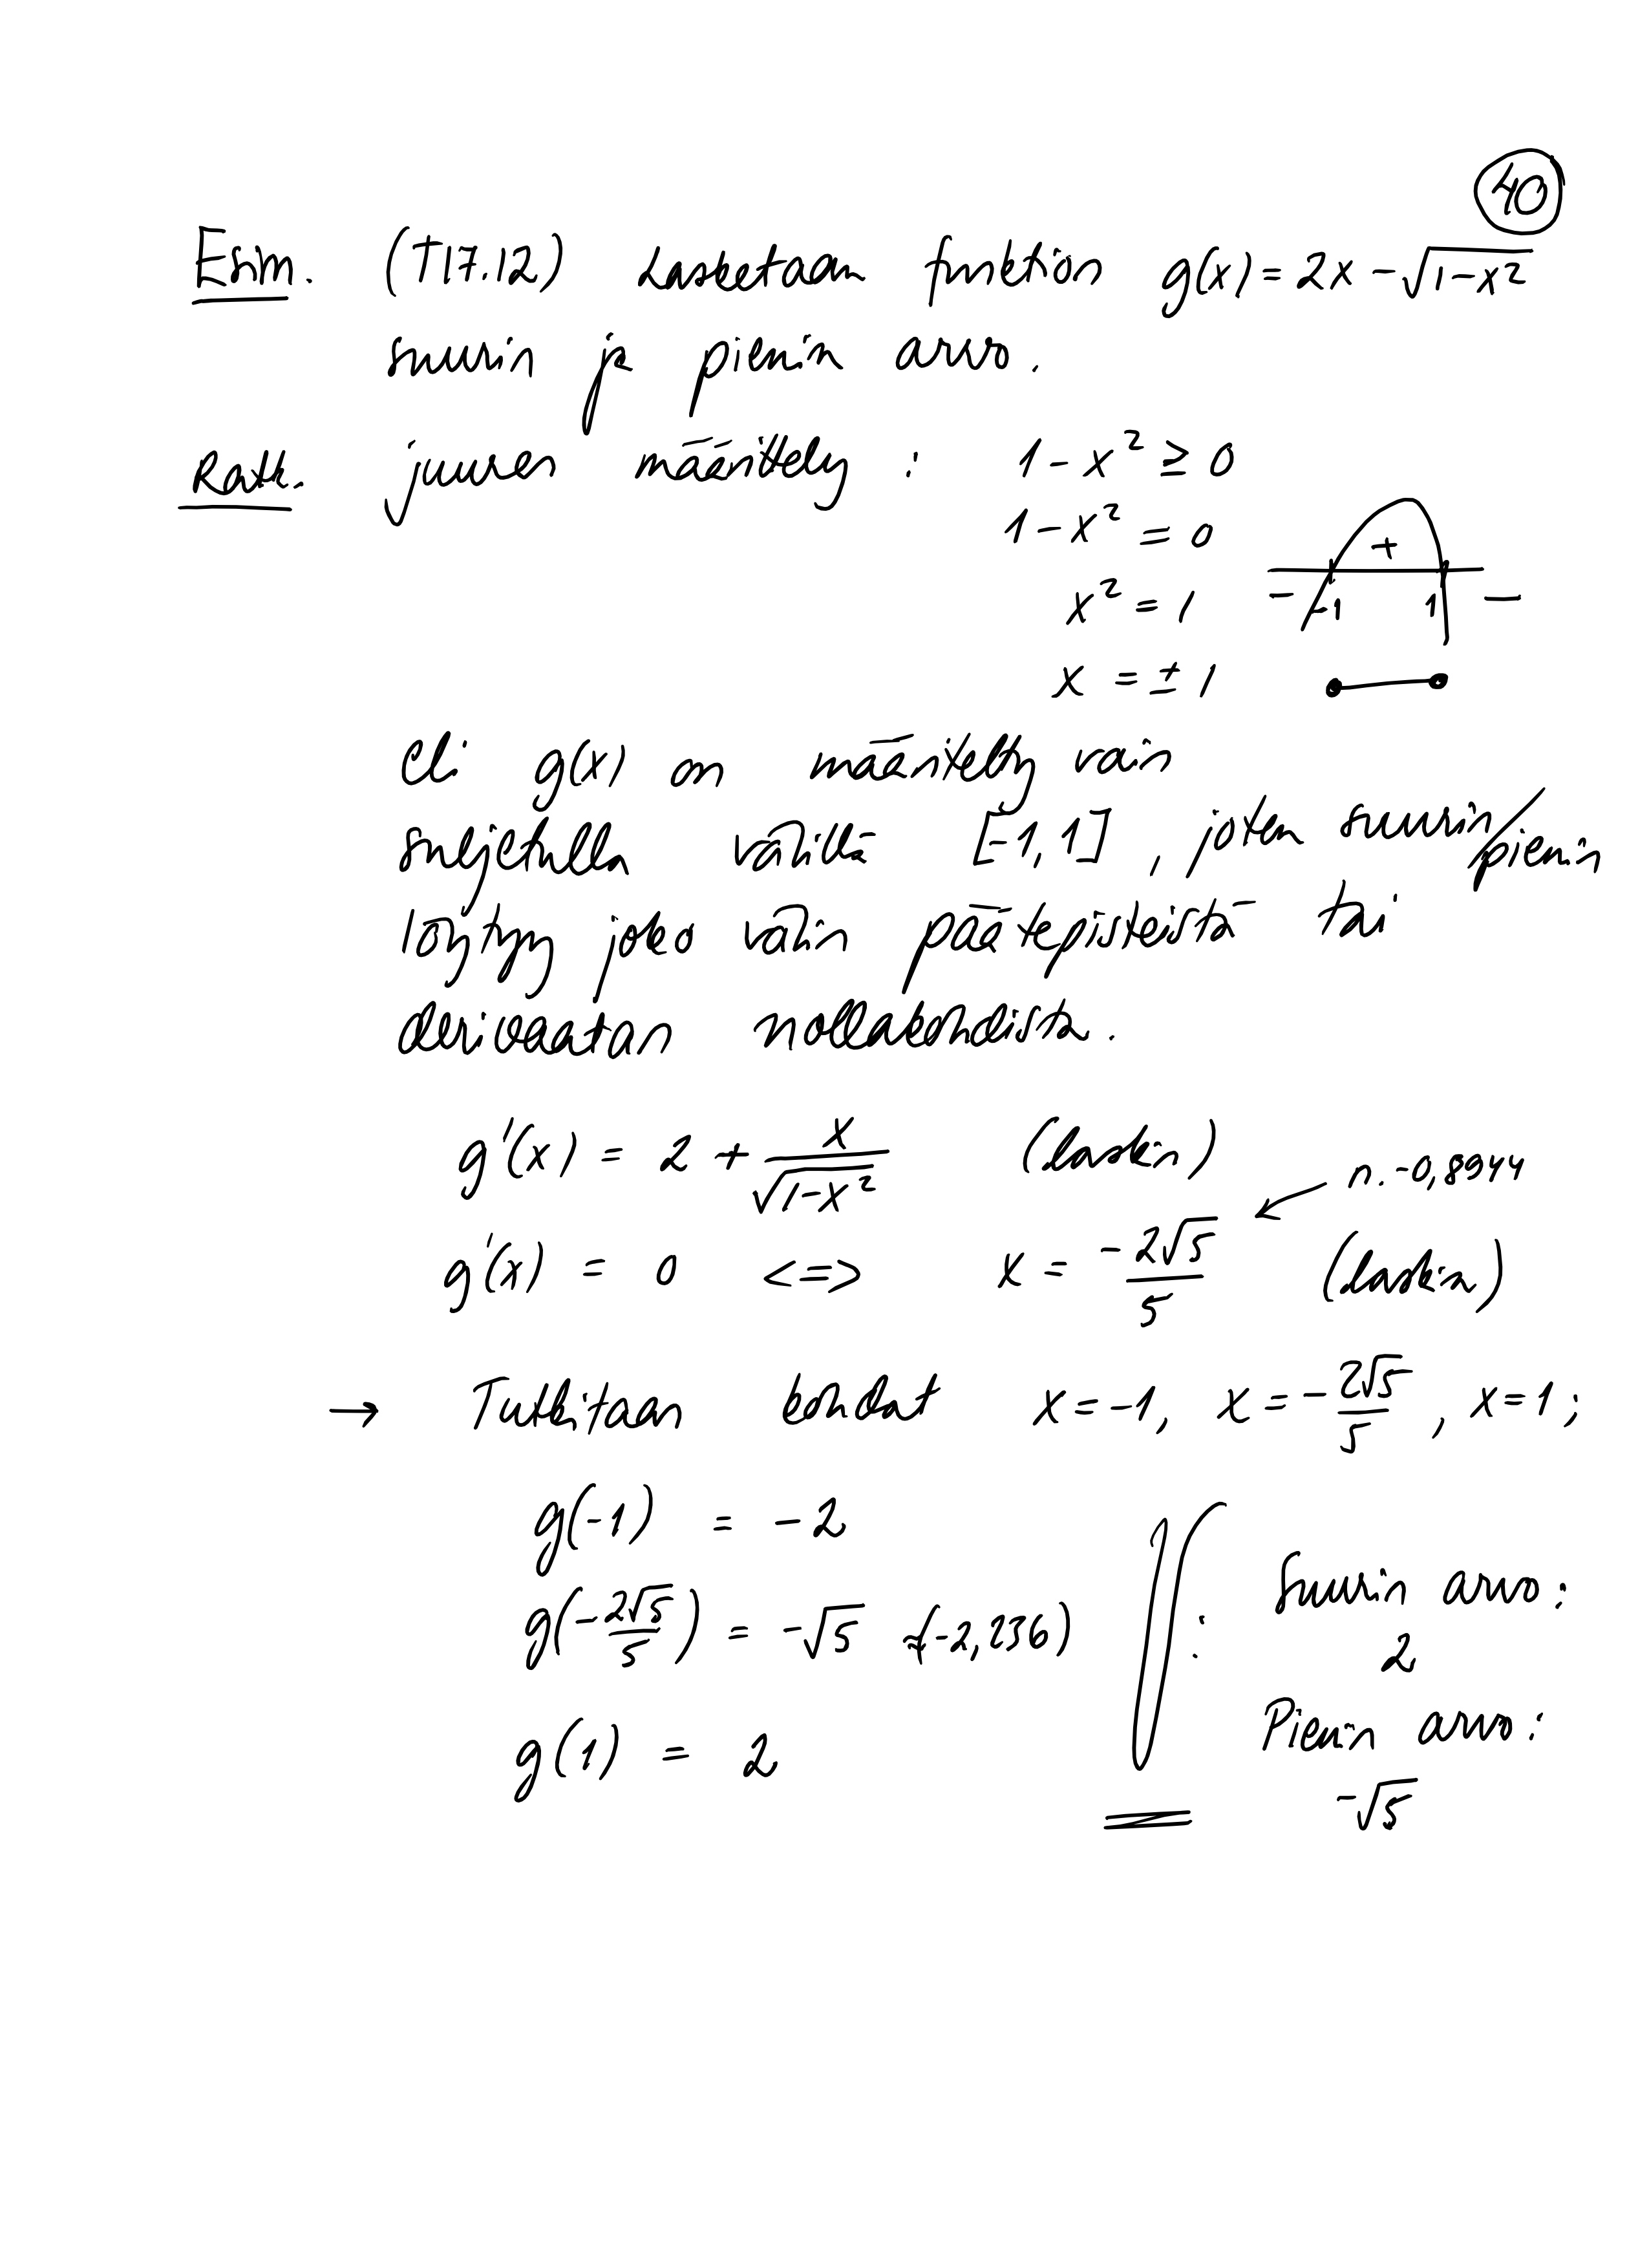 40
Esim. (T17.12) Lasketaan funktion g(x) = 2x - √(1-x²)
suurin ja pienin arvo.
Ratk. juuren määrittely : 1 - x² ≥ 0
1 - x² = 0
+
x² = 1 - -1 1 -
x = ± 1
eli g(x) on määritelty vain
suljetulla välillä [-1, 1] , joten suurin/pienin
löytyy joko välin päätepisteistä tai
derivaatan nollakohdista.
g'(x) = 2 + x/√(1-x²) (laskin)
n. -0,8944
g'(x) = 0 <=> x = -2√5/5 (laskin)
→ Tutkitaan kohdat x = -1, x = -2√5/5 , x = 1 ;
g(-1) = -2
g(-2√5/5) = -√5 (-2,236)
g(1) = 2
: Suurin arvo :
2
Pienin arvo :
-√5